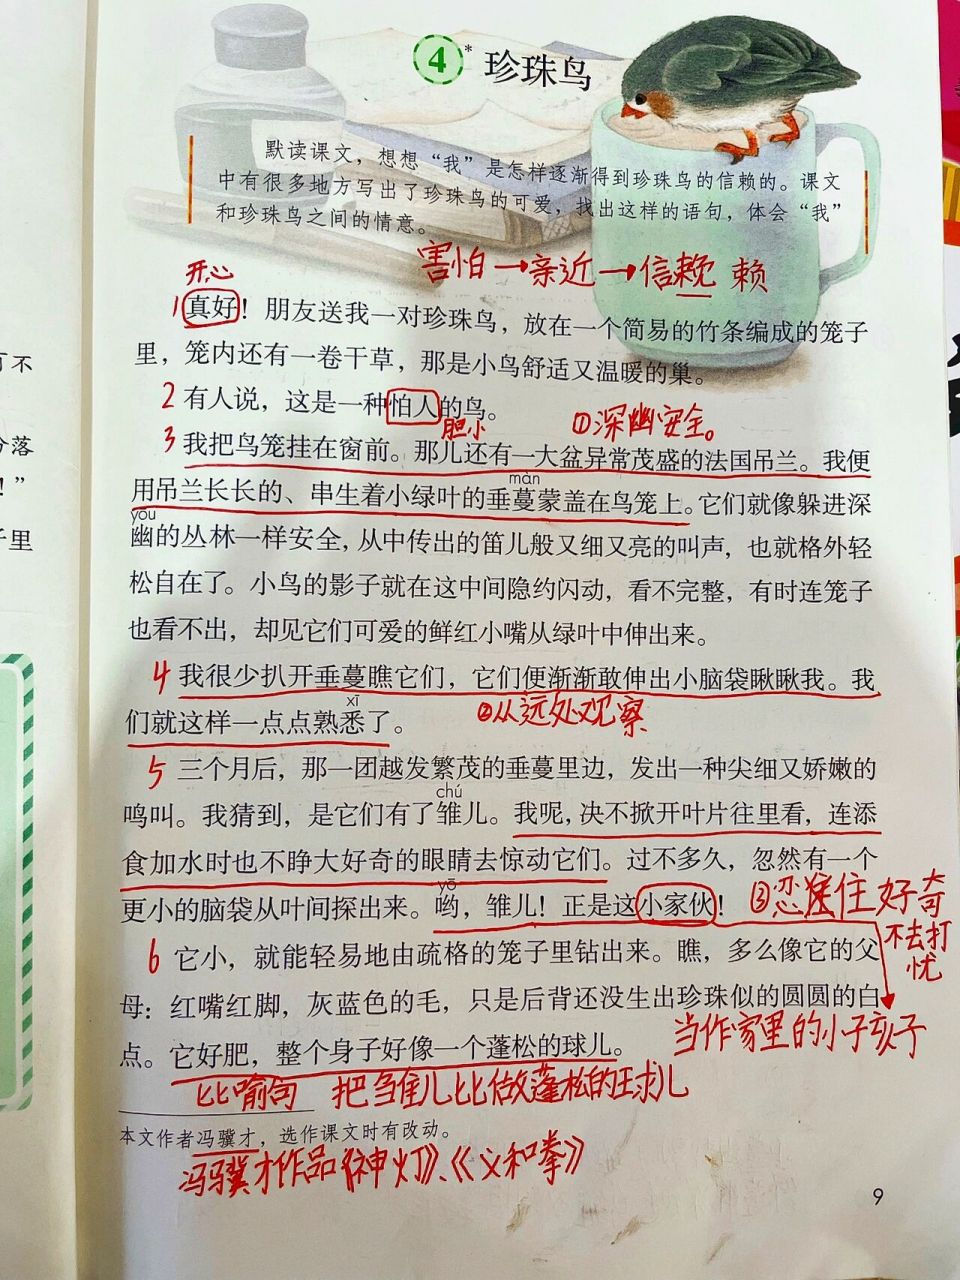 4* 珍珠鸟
默读课文，想想“我”是怎样逐渐得到珍珠鸟的信赖的。课文
中有很多地方写出了珍珠鸟的可爱，找出这样的语句，体会“我”
和珍珠鸟之间的情意。
害怕→亲近→信赖 赖
开心
1 真好！朋友送我一对珍珠鸟，放在一个简易的竹条编成的笼子
里，笼内还有一卷干草，那是小鸟舒适又温暖的巢。
2 有人说，这是一种怕人的鸟。
胆小
①深幽安全。
3 我把鸟笼挂在窗前。那儿还有一大盆异常茂盛的法国吊兰。我便
màn
用吊兰长长的、串生着小绿叶的垂蔓蒙盖在鸟笼上。它们就像躲进深
yōu
幽的丛林一样安全，从中传出的笛儿般又细又亮的叫声，也就格外轻
松自在了。小鸟的影子就在这中间隐约闪动，看不完整，有时连笼子
也看不出，却见它们可爱的鲜红小嘴从绿叶中伸出来。
4 我很少扒开垂蔓瞧它们，它们便渐渐敢伸出小脑袋瞅瞅我。我
xī
们就这样一点点熟悉了。
②从远处观察
5 三个月后，那一团越发繁茂的垂蔓里边，发出一种尖细又娇嫩的
chú
鸣叫。我猜到，是它们有了雏儿。我呢，决不掀开叶片往里看，连添
食加水时也不睁大好奇的眼睛去惊动它们。过不多久，忽然有一个
yō
更小的脑袋从叶间探出来。哟，雏儿！正是这小家伙！
③忍住好奇
不去打
忧
6 它小，就能轻易地由疏格的笼子里钻出来。瞧，多么像它的父
母：红嘴红脚，灰蓝色的毛，只是后背还没生出珍珠似的圆圆的白
点。它好肥，整个身子好像一个蓬松的球儿。
当作家里的小孩子
比喻句 把雏儿比做蓬松的球儿
本文作者冯骥才，选作课文时有改动。
冯骥才作品《神灯》、《义和拳》
9
不
落
！”
里